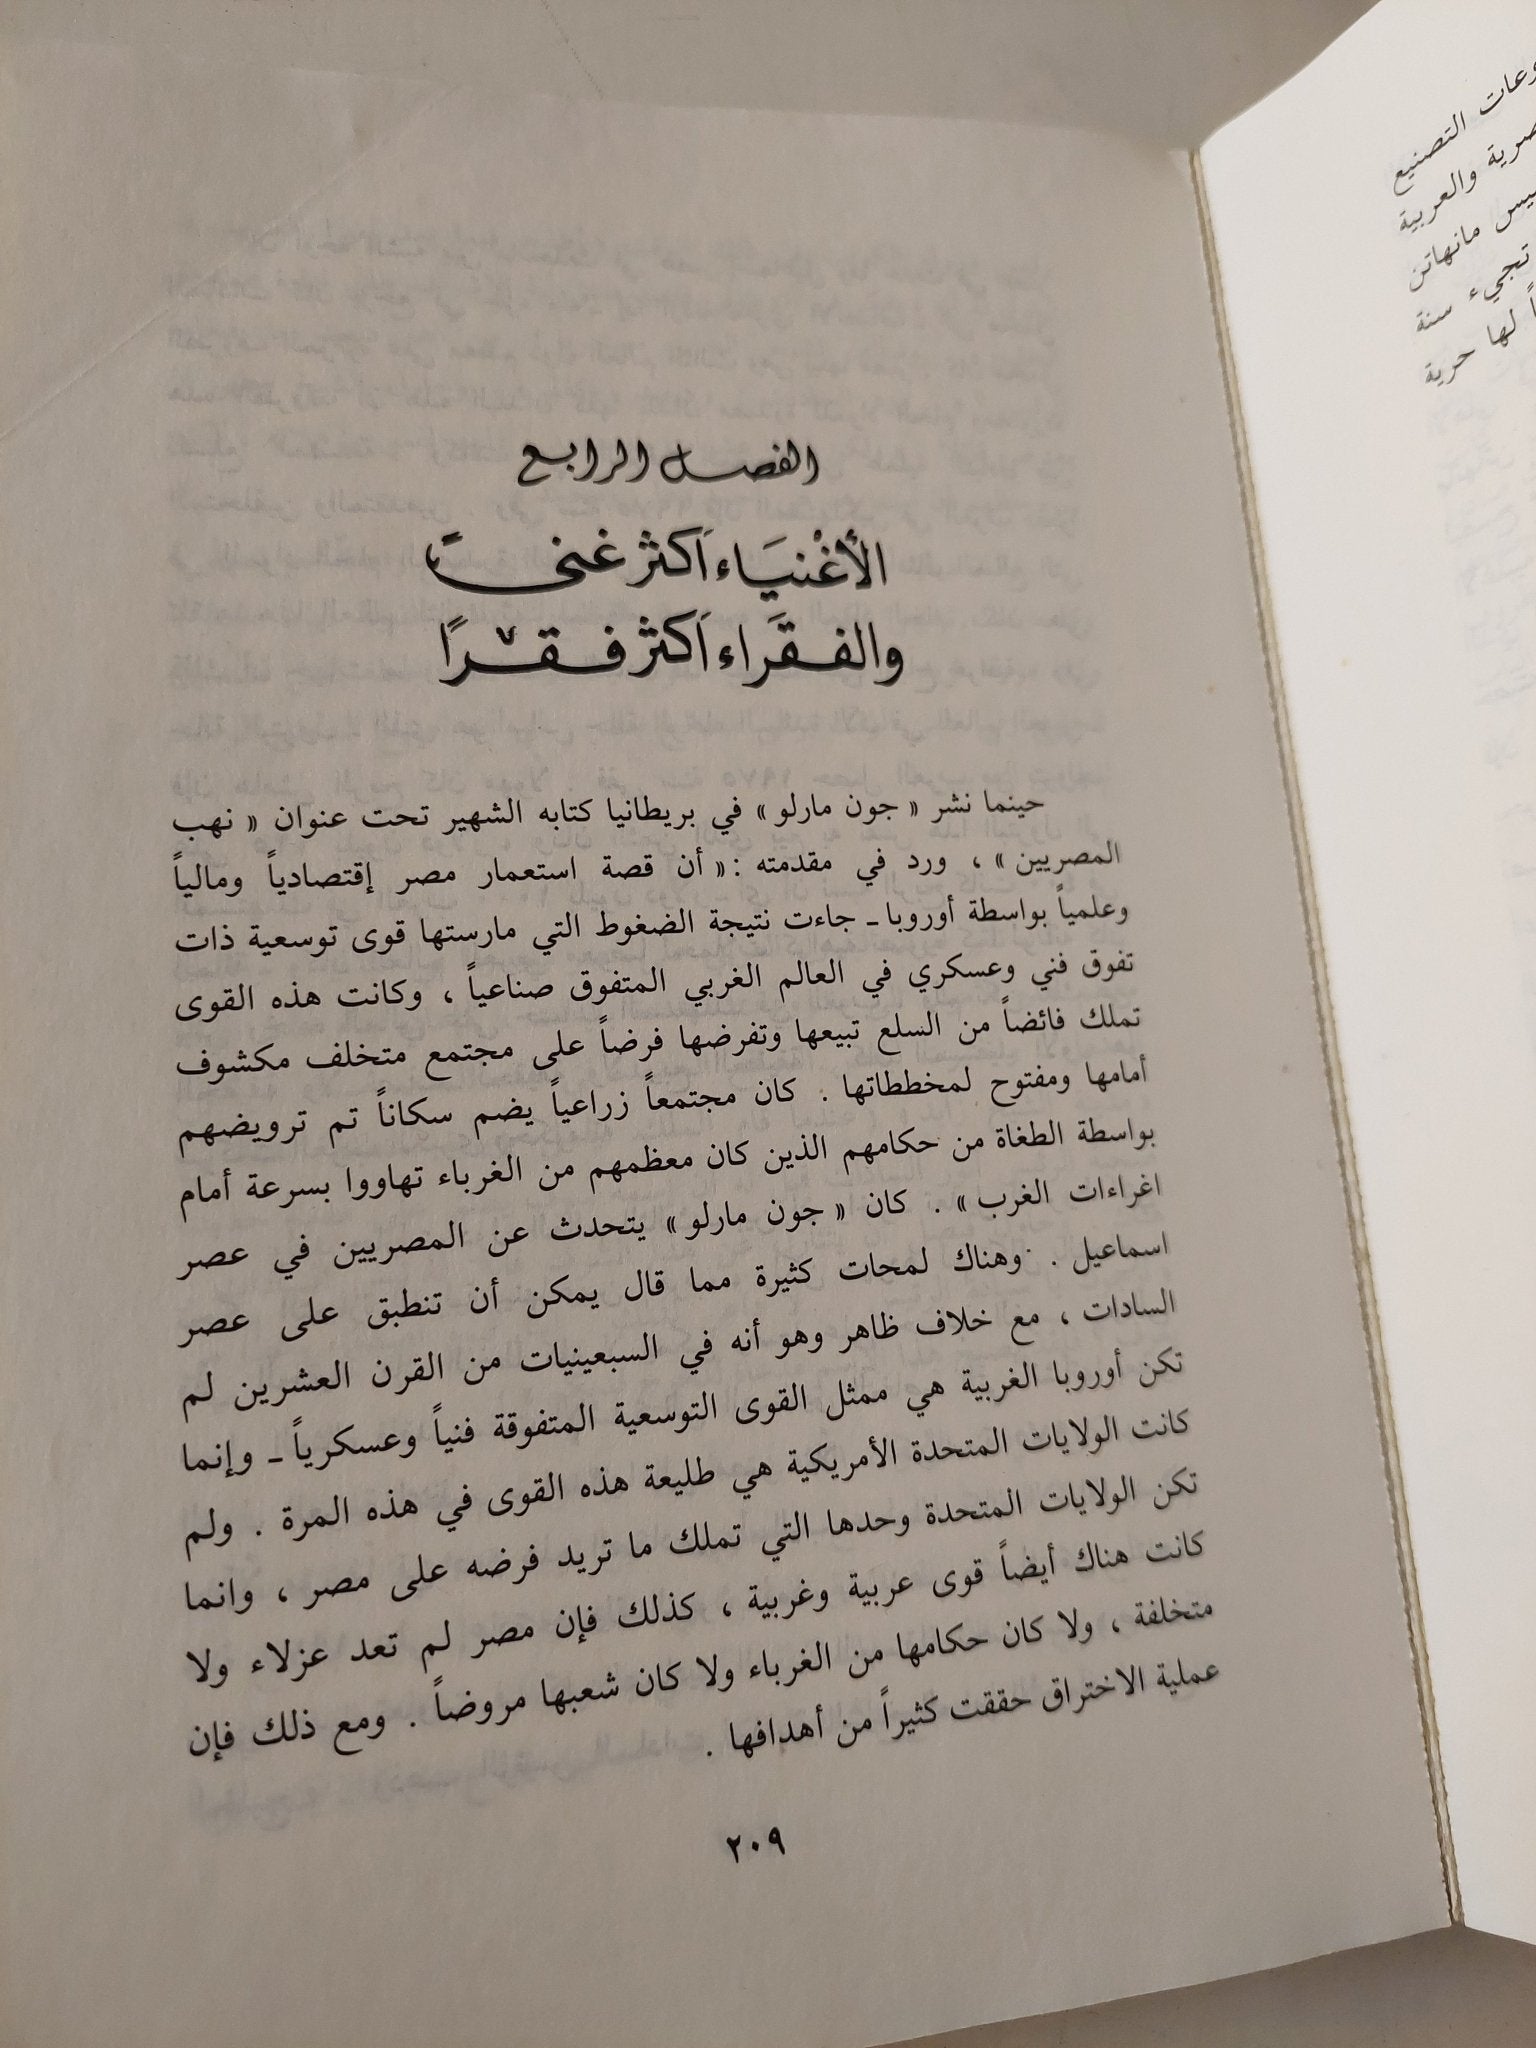 الفصل الرابع
الأغْنيَاء اَكثر غنىً
والفقَراء اَكثر فقرًا
حينما نشر « جون مارلو » في بريطانيا كتابه الشهير تحت عنوان « نهب
المصريين » ، ورد في مقدمته : « أن قصة استعمار مصر إقتصادياً ومالياً
وعلمياً بواسطة أوروبا ـ جاءت نتيجة الضغوط التي مارستها قوى توسعية ذات
تفوق فني وعسكري في العالم الغربي المتفوق صناعياً ، وكانت هذه القوى
تملك فائضاً من السلع تبيعها وتفرضها فرضاً على مجتمع متخلف مكشوف
أمامها ومفتوح لمخططاتها . كان مجتمعاً زراعياً يضم سكاناً تم ترويضهم
بواسطة الطغاة من حكامهم الذين كان معظمهم من الغرباء تهاووا بسرعة أمام
اغراءات الغرب » . كان « جون مارلو » يتحدث عن المصريين في عصر
اسماعيل . وهناك لمحات كثيرة مما قال يمكن أن تنطبق على عصر
السادات ، مع خلاف ظاهر وهو أنه في السبعينيات من القرن العشرين لم
تكن أوروبا الغربية هي ممثل القوى التوسعية المتفوقة فنياً وعسكرياً ـ وإنما
كانت الولايات المتحدة الأمريكية هي طليعة هذه القوى في هذه المرة . ولم
تكن الولايات المتحدة وحدها التي تملك ما تريد فرضه على مصر ، وانما
كانت هناك أيضاً قوى عربية وغربية ، كذلك فإن مصر لم تعد عزلاء ولا
متخلفة ، ولا كان حكامها من الغرباء ولا كان شعبها مروضاً . ومع ذلك فإن
عملية الاختراق حققت كثيراً من أهدافها .
٢٠٩
التصنيع
والعربية
مانهاتن
تجيء سنة
لها حرية